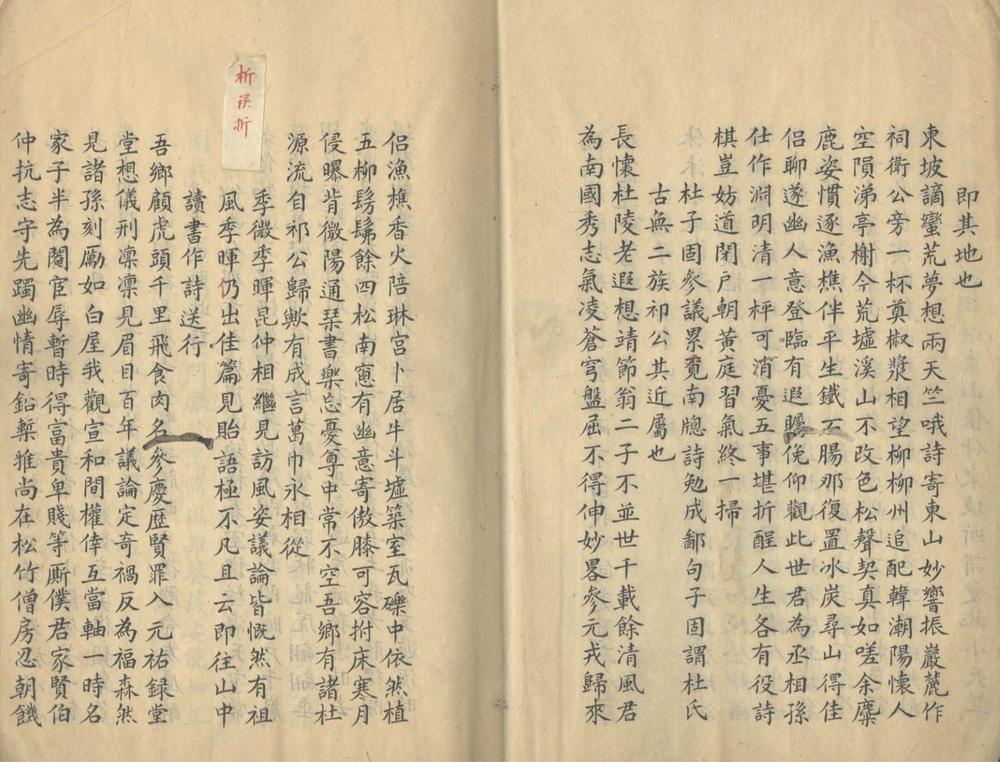 即其地也
東坡謫蠻荒夢想兩天竺哦詩寄東山妙響振巖麓作
祠衛公旁一杯奠椒漿相望柳柳州追配韓潮陽懷人
空隕涕亭榭今荒墟溪山不改色松聲契真如嗟余麋
鹿姿慣逐漁樵伴平生鐵石腸那復置冰炭尋山得佳
侶聊遂幽人意登臨有遐矚俛仰觀此世君為丞相孫
仕作淵明清一枰可消憂五事堪折醒人生各有役詩
棋豈妨道閉戶朝黃庭習氣終一掃
杜子固參議累覓南牕詩勉成鄙句子固謂杜氏
古無二族祁公其近屬也
長懷杜陵老遐想靖節翁二子不並世千載餘清風君
為南國秀志氣凌蒼穹盤屈不得伸妙畧參元戎歸來
侶漁樵香火陪琳宮卜居牛斗墟築室瓦礫中依然植
五柳髣髴餘四松南窻有幽意寄傲膝可容拊床寒月
侵曝背微陽通琹書樂忘憂尊中常不空吾鄉有諸杜
源流自祁公歸歟有成言葛巾永相從
季微季暉昆仲相繼見訪風姿議論皆慨然有祖
風季暉仍出佳篇見貽語極不凡且云即往山中
讀書作詩送行
吾鄉顧虎頭千里飛食肉名參慶歷賢罪入元祐録堂
堂想儀刑凛凛見眉目百年議論定奇禍反為福森然
見諸孫刻勵如白屋我觀宣和間權倖互當軸一時名
家子半為閹宦辱暫時得富貴卑賤等廝僕君家賢伯
仲抗志守先躅幽情寄鉛槧雅尚在松竹僧房忍朝饑
析誤折